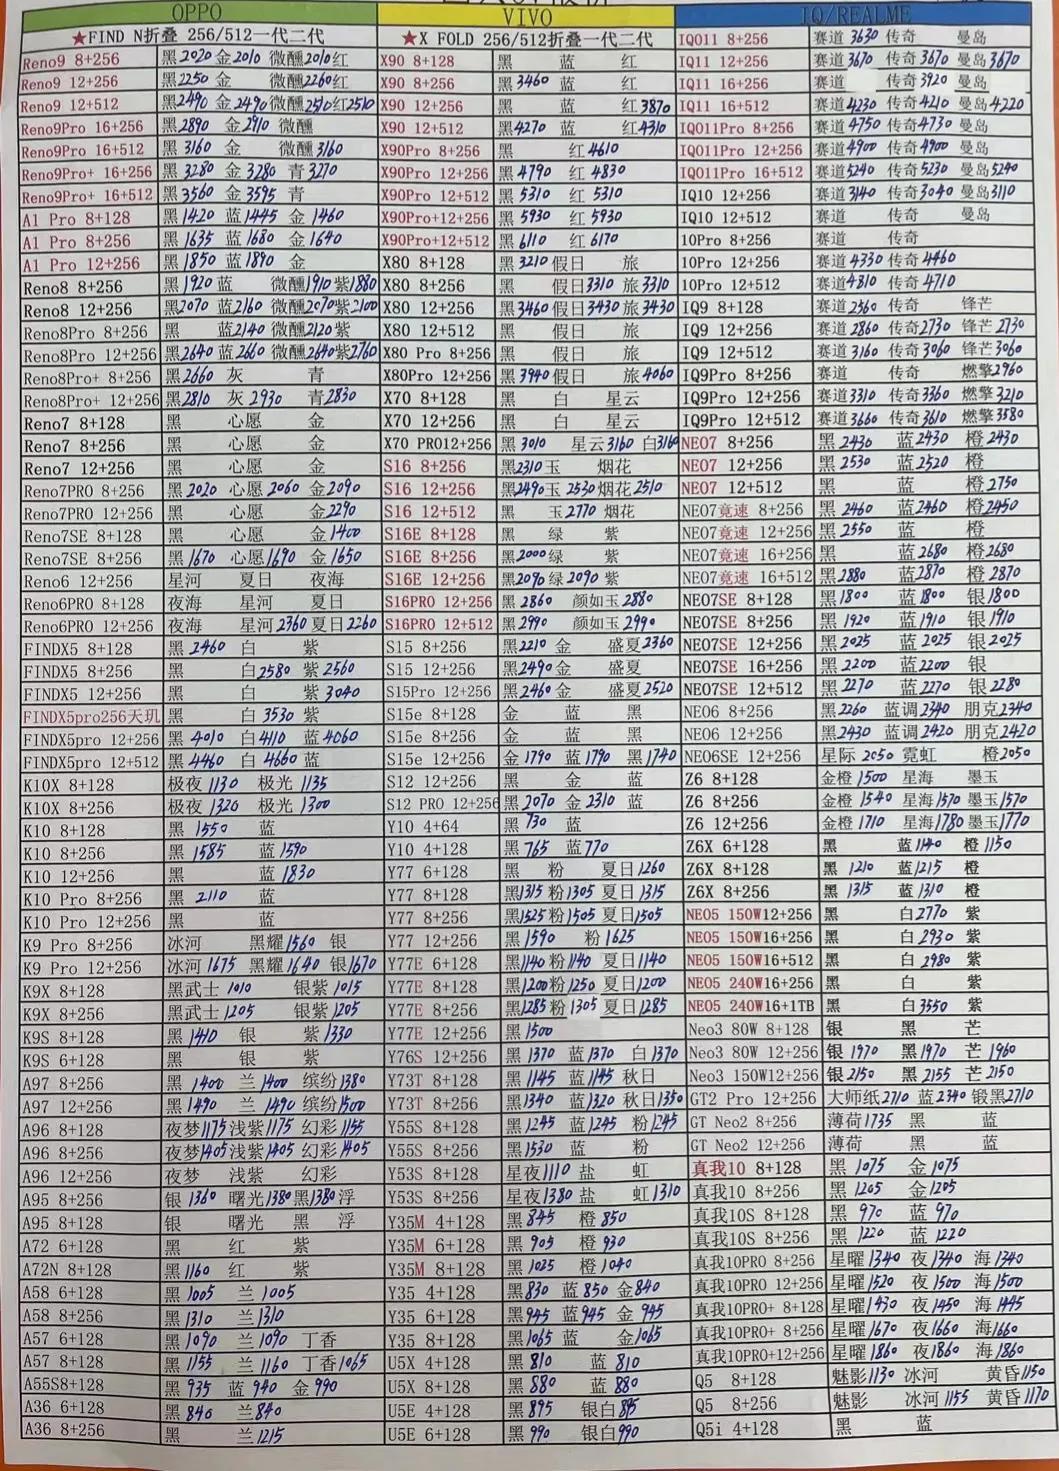 OPPO VIVO IQ/REALME
★FIND N折叠 256/512一代二代 ★X FOLD 256/512折叠一代二代 IQO11 8+256 赛道 3630 传奇 曼岛
Reno9 8+256 黑2020 金2010 微醺2010红 X90 8+128 黑 蓝 红 IQ11 12+256 赛道3670 传奇3670 曼岛3670
Reno9 12+256 黑2250 金 微醺2260红 X90 8+256 黑3460 蓝 红 IQ11 16+256 传奇3920 曼岛
Reno9 12+512 黑2490 金2490微醺2510红2510 X90 12+256 黑 蓝 红3870 IQ11 16+512 赛道4230 传奇4210 曼岛4220
Reno9Pro 16+256 黑2890 金2910 微醺 X90 12+512 黑4270 蓝 红4310 IQO11Pro 8+256 赛道4750 传奇4730 曼岛
Reno9Pro 16+512 黑3160 金 微醺3160 X90Pro 8+256 黑 红4610 IQO11Pro 12+256 赛道4900 传奇4900 曼岛
Reno9Pro+ 16+256 黑3280 金3280 青3270 X90Pro 12+256 黑4790 红4830 IQO11Pro 16+512 赛道5240 传奇5230 曼岛5240
Reno9Pro+ 16+512 黑3560 金3595 青 X90Pro 12+512 黑5310 红5310 IQ10 12+256 赛道3140 传奇3040 曼岛3110
A1 Pro 8+128 黑1420 蓝1445 金1460 X90Pro+12+256 黑5930 红5930 IQ10 12+512 赛道 传奇 曼岛
A1 Pro 8+256 黑1635 蓝1680 金1640 X90Pro+12+512 黑6110 红6170 10Pro 8+256 赛道 传奇
A1 Pro 12+256 黑1850 蓝1890 金 X80 8+128 黑3210假日 旅 10Pro 12+256 赛道4330 传奇4460
Reno8 8+256 黑1920蓝 微醺1910紫1880 X80 8+256 黑 假日3310 旅3310 10Pro 12+512 赛道4810 传奇4710
Reno8 12+256 黑2070 蓝2160 微醺2070紫2100 X80 12+256 黑3460假日3430 旅3430 IQ9 8+128 赛道2560 传奇 锋芒
Reno8Pro 8+256 黑 蓝2140 微醺2120紫 X80 12+512 黑 假日 旅 IQ9 12+256 赛道2860 传奇2730 锋芒2730
Reno8Pro 12+256 黑2640 蓝2660 微醺2640紫2760 X80 Pro 8+256 黑 假日 旅 IQ9 12+512 赛道3160 传奇3060 锋芒3060
Reno8Pro+ 8+256 黑2660 灰 青 X80Pro 12+256 黑3940假日 旅4060 IQ9Pro 8+256 赛道 传奇 燃擎2960
Reno8Pro+ 12+256 黑2810 灰2930 青2830 X70 8+128 黑 白 星云 IQ9Pro 12+256 赛道3310 传奇3360 燃擎3210
Reno7 8+128 黑 心愿 金 X70 12+256 黑 白 星云 IQ9Pro 12+512 赛道3660 传奇3610 燃擎3580
Reno7 8+256 黑 心愿 金 X70 PRO12+256 黑3010 星云3160 白3160 NEO7 8+256 黑2430 蓝2430 橙2430
Reno7 12+256 黑 心愿 金 S16 8+256 黑2310玉 烟花 NEO7 12+256 黑2530 蓝2520 橙
Reno7PRO 8+256 黑2020 心愿2060 金2090 S16 12+256 黑2490玉2530烟花2510 NEO7 12+512 黑 蓝 橙2750
Reno7PRO 12+256 黑 心愿 金2290 S16 12+512 黑 玉2770 烟花 NEO7竞速 8+256 黑2460 蓝2460 橙2450
Reno7SE 8+128 黑 心愿 金1400 S16E 8+128 黑 绿 紫 NEO7竞速 12+256 黑2550 蓝 橙
Reno7SE 8+256 黑1670 心愿1690 金1650 S16E 8+256 黑2000绿 紫 NEO7竞速 16+256 黑 蓝2680 橙2680
Reno6 12+256 星河 夏日 夜海 S16E 12+256 黑2090绿2090 紫 NEO7竞速 16+512 黑2880 蓝2870 橙2870
Reno6PRO 8+128 夜海 星河 夏日 S16PRO 12+256 黑2860 颜如玉2880 NEO7SE 8+128 黑1800 蓝1800 银1800
Reno6PRO 12+256 夜海 星河2360夏日2260 S16PRO 12+512 黑2990 颜如玉2990 NEO7SE 8+256 黑1920 蓝1910 银1910
FINDX5 8+128 黑2460 白 紫 S15 8+256 黑2210 金 盛夏2360 NEO7SE 12+256 黑2025 蓝2025 银2025
FINDX5 8+256 黑 白2580 紫2560 S15 12+256 黑2490金 盛夏 NEO7SE 16+256 黑2200 蓝2200 银
FINDX5 12+256 黑 白 紫3040 S15Pro 12+256 黑2460金 盛夏2520 NEO7SE 12+512 黑2270 蓝2270 银2280
FINDX5pro256天玑 黑 白3530 紫 S15e 8+128 金 蓝 黑 NEO6 8+256 黑2260 蓝调2340 朋克2340
FINDX5pro 12+256 黑4010 白4110 蓝4060 S15e 8+256 金 蓝 黑 NEO6 12+256 黑2430 蓝调2420 朋克2420
FINDX5pro 12+512 黑4460 白4660蓝 S15e 12+256 金1790 蓝1790 黑1740 NEO6SE 12+256 星际2050 霓虹 橙2050
K10X 8+128 极夜1130 极光1135 S12 12+256 黑 金 蓝 Z6 8+128 金橙1500 星海 墨玉
K10X 8+256 极夜1320 极光1300 S12 PRO 12+256 黑2070 金2310 蓝 Z6 8+256 金橙1540 星海1570 墨玉1570
K10 8+128 黑1550 蓝 Y10 4+64 黑730 蓝 Z6 12+256 金橙1710 星海1780墨玉1770
K10 8+256 黑1585 蓝1590 Y10 4+128 黑765 蓝770 Z6X 6+128 黑 蓝1140 橙1150
K10 12+256 黑 蓝1830 Y77 6+128 黑 粉 夏日1260 Z6X 8+128 黑1210 蓝1215 橙
K10 Pro 8+256 黑2110 蓝 Y77 8+128 黑1315粉1305 夏日1315 Z6X 8+256 黑1315 蓝1310 橙
K10 Pro 12+256 黑 蓝 Y77 8+256 黑1525粉1505 夏日1505 NEO5 150W12+256 黑 白2770 紫
K9 Pro 8+256 冰河 黑耀1560 银 Y77 12+256 黑1590 粉1625 NEO5 150W16+256 黑 白2930 紫
K9 Pro 12+256 冰河1675 黑耀1640 银1670 Y77E 6+128 黑1140粉1140 夏日1140 NEO5 150W16+512 黑 白2980 紫
K9X 8+128 黑武士1010 银紫1015 Y77E 8+128 黑1200粉1250 夏日1200 NEO5 240W16+256 黑 白 紫
K9X 8+256 黑武士1205 银紫1205 Y77E 8+256 黑1285粉1305 夏日1285 NEO5 240W16+1TB 黑 白3550 紫
K9S 8+128 黑1410 银 紫1330 Y77E 12+256 黑1500 Neo3 80W 8+128 银 黑 芒
K9S 6+128 黑 银 紫 Y76S 12+256 黑1370 蓝1370 白1370 Neo3 80W 12+256 银1970 黑1970 芒1960
A97 8+256 黑1400 兰1400 缤纷1380 Y73T 8+128 黑1145 蓝1145 秋日 Neo3 150W12+256 银2150 黑2155 芒2150
A97 12+256 黑1490 兰1490 缤纷1500 Y73T 8+256 黑1340 蓝1320 秋日1350 GT2 Pro 12+256 大师纸2710 蓝2340 锻黑2710
A96 8+128 夜梦1175浅紫1175 幻彩1155 Y55S 8+128 黑1245 蓝1245 粉1245 GT Neo2 8+256 薄荷1735 黑 蓝
A96 8+256 夜梦1405浅紫1405 幻彩1405 Y55S 8+256 黑1530 蓝 粉 GT Neo2 12+256 薄荷 黑 蓝
A96 12+256 夜梦 浅紫 幻彩 Y53S 8+128 星夜1110 盐 虹 真我10 8+128 黑1075 金1075
A95 8+256 银1360 曙光1380黑1380浮 Y53S 8+256 星夜1380 盐 虹1310 真我10 8+256 黑1205 金1205
A95 8+128 银 曙光 黑 浮 Y35M 4+128 黑845 橙850 真我10S 8+128 黑970 蓝970
A72 6+128 黑 红 紫 Y35M 6+128 黑905 橙930 真我10S 8+256 黑1220 蓝1220
A72N 8+128 黑1160 红 紫 Y35M 8+128 黑1025 橙1040 真我10PRO 8+256 星曜1340 夜1340 海1340
A58 6+128 黑1005 兰1005 Y35 4+128 黑830 蓝850 金840 真我10PRO 12+256 星曜1520 夜1500 海1500
A58 8+256 黑1310 兰1310 Y35 6+128 黑945 蓝945 金945 真我10PRO+ 8+128 星曜1430 夜1450 海1445
A57 6+128 黑1090 兰1090 丁香 Y35 8+128 黑1065 蓝 金1065 真我10PRO+ 8+256 星曜1670 夜1660 海1660
A57 8+128 黑1155 兰1160 丁香1065 U5X 4+128 黑810 蓝810 真我10PRO+12+256 星曜1860 夜1860 海1860
A55S8+128 黑935 蓝940 金990 U5X 8+128 黑880 蓝880 Q5 8+128 魅影1130 冰河 黄昏1150
A36 6+128 黑840 兰840 U5E 4+128 黑895 银白895 Q5 8+256 魅影 冰河1155 黄昏1170
A36 8+256 黑 兰1215 U5E 6+128 黑990 银白990 Q5i 4+128 黑 蓝